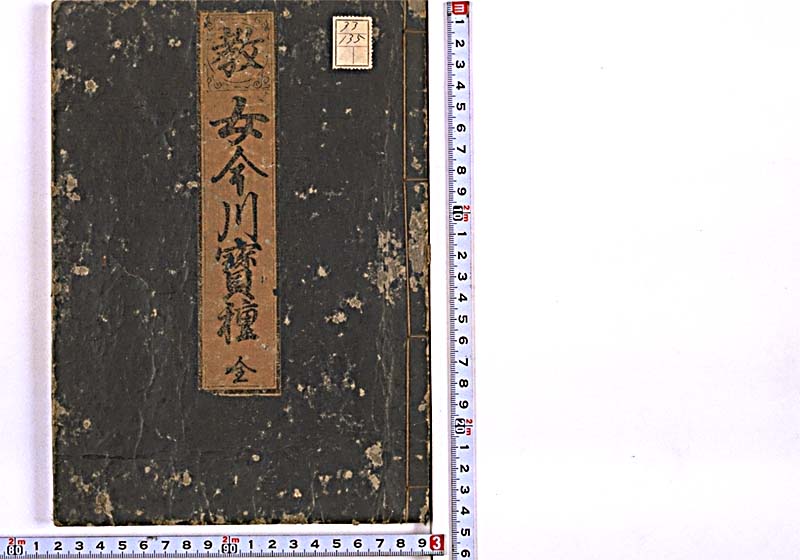 教
女今川寶種
全
33
135
1
m 1 2 3 4 5 6 7 8 9 10 1 2 3 4 5 6 7 8 9 20 1 2 3 4 5 6
80 1 2 3 4 5 6 7 8 9 90 1 2 3 4 5 6 7 8 9 3